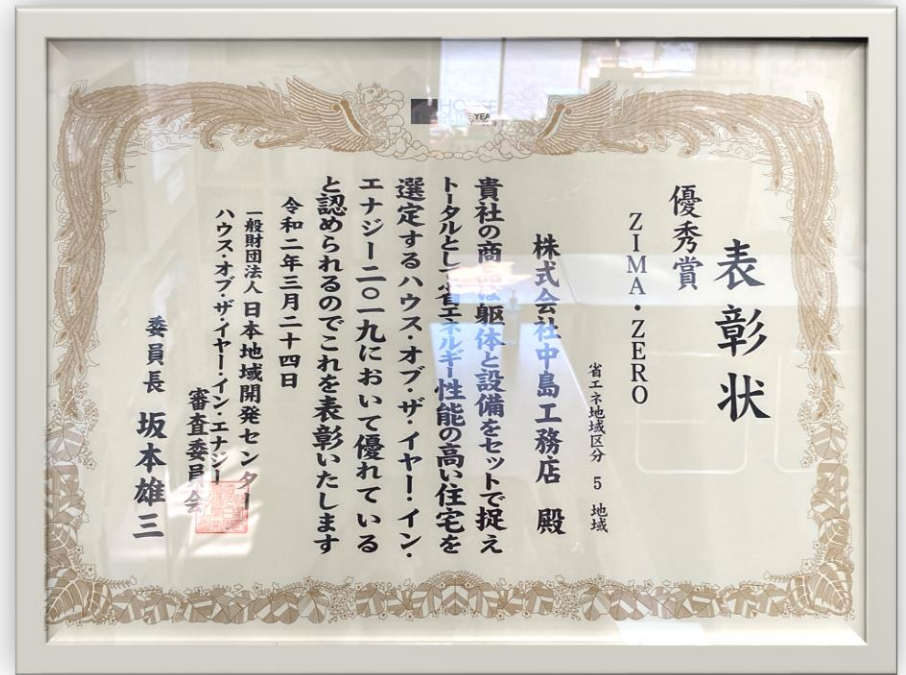 HOUSE
YEAR
表彰状
優秀賞
ZIMA・ZERO
省エネ地域区分 5 地域
株式会社中島工務店 殿
貴社の商品は躯体と設備をセットで捉え
トータルとして省エネルギー性能の高い住宅を
選定するハウス・オブ・ザ・イヤー・イン・
エナジー二〇一九において優れている
と認められるのでこれを表彰いたします
令和二年三月二十四日
一般財団法人 日本地域開発センター
ハウス・オブ・ザ・イヤー・イン・エナジー
審査委員会
委員長 坂本雄三